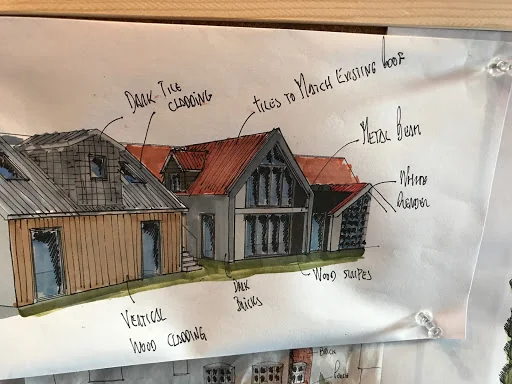 DARK TILE
CLADDING
TILES TO MATCH EXISTING ROOF
METAL BEAM
WHITE
RENDER
WOOD STRIPES
DARK
BRICKS
VERTICAL
WOOD CLADDING
BRICK